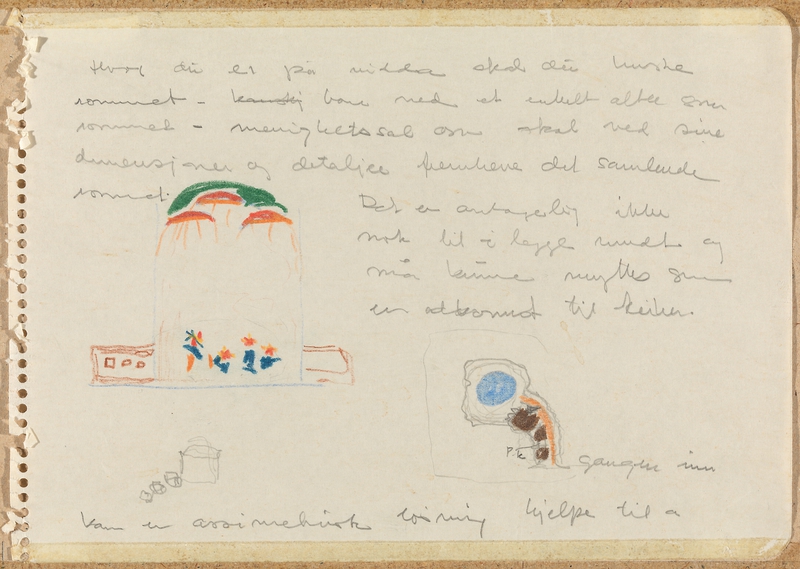 du er på skal du huske
rommet - bare ned et enkelt alter som
rommet - menighetssal som skal ved sine
dimensjoner og detaljer fremheve det samlende
rommet.
Det er antagelig ikke
nok til å legge rundt og
må kunne nyttes som
en adkomst til
P.k
gangen inn
kan en løsning hjelpe til å